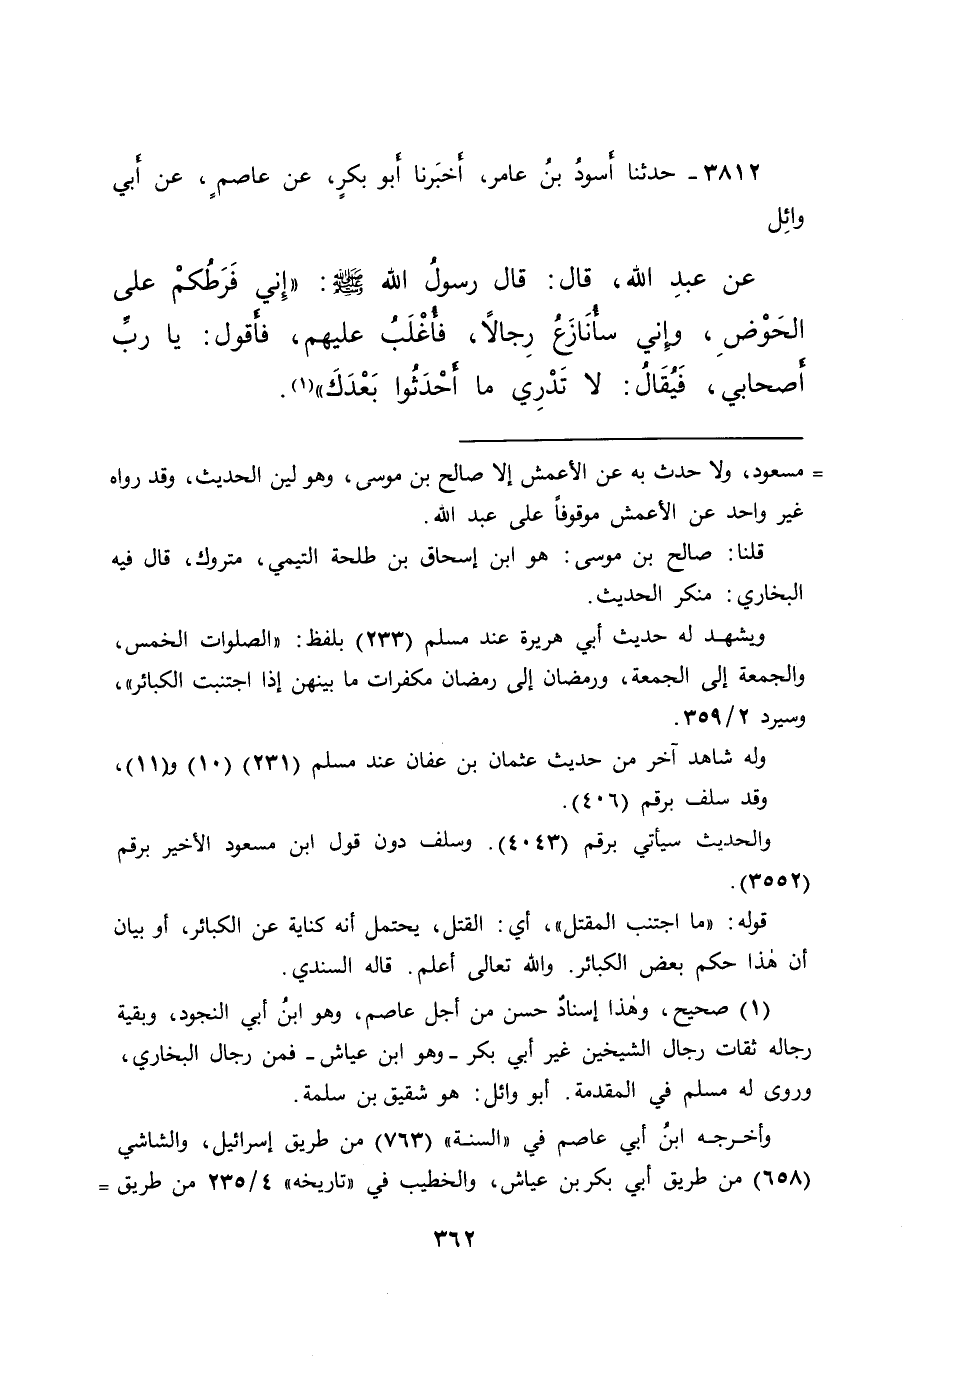 ٣٨١٢ـ حدثنا أَسودُ بنُ عامر، أَخبَرنا أَبو بكرٍ، عن عاصمٍ، عن أَبي
وائِل
عن عبدِ الله، قال: قال رسولُ الله ﷺ: «إِني فَرَطُكمْ على
الحَوْضِ، وإِني سأُنَازَعُ رِجالًا، فأُغْلَبُ عليهم، فأَقول: يا ربِّ
أَصحابي، فَيُقَالُ: لا تَدْرِي ما أَحْدَثُوا بَعْدَكَ»(١).
= مسعود، ولا حدث به عن الأعمش إلا صالح بن موسى، وهو لين الحديث، وقد رواه
غير واحد عن الأعمش موقوفاً على عبد الله.
قلنا: صالح بن موسى: هو ابن إسحاق بن طلحة التيمي، متروك، قال فيه
البخاري: منكر الحديث.
ويشهد له حديث أبي هريرة عند مسلم (٢٣٣) بلفظ: «الصلوات الخمس،
والجمعة إلى الجمعة، ورمضان إلى رمضان مكفرات ما بينهن إذا اجتنبت الكبائر»،
وسيرد ٣٥٩/٢.
وله شاهد آخر من حديث عثمان بن عفان عند مسلم (٢٣١) (١٠) و(١١)،
وقد سلف برقم (٤٠٦).
والحديث سيأتي برقم (٤٠٤٣). وسلف دون قول ابن مسعود الأخير برقم
(٣٥٥٢).
قوله: «ما اجتنب المقتل»، أي: القتل، يحتمل أنه كناية عن الكبائر، أو بيان
أن هٰذا حكم بعض الكبائر. والله تعالى أعلم. قاله السندي.
(١) صحيح، وهٰذا إسنادٌ حسن من أجل عاصم، وهو ابنُ أبي النجود، وبقية
رجاله ثقات رجال الشيخين غير أبي بكر ـ وهو ابن عياش ـ فمن رجال البخاري،
وروى له مسلم في المقدمة. أبو وائل: هو شقيق بن سلمة.
وأخرجه ابنُ أبي عاصم في «السنة» (٧٦٣) من طريق إسرائيل، والشاشي
(٦٥٨) من طريق أبي بكر بن عياش، والخطيب في «تاريخه» ٢٣٥/٤ من طريق =
٣٦٢